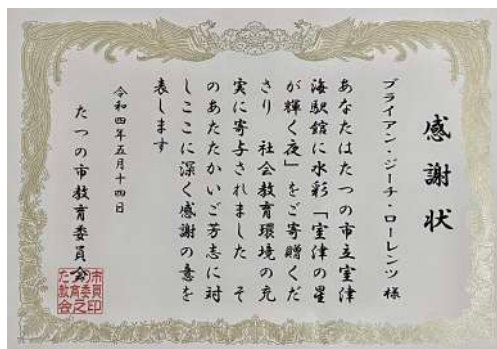 感謝状
ブライアン・ジーチ・ローレンツ 様
あなたはたつの市立室津
海駅館に水彩「室津の星
が輝く夜」をご寄贈くだ
さり 社会教育環境の充
実に寄与されました そ
のあたたかいご芳志に対
しここに深く感謝の意を
表します
令和四年五月十四日
たつの市教育委員会